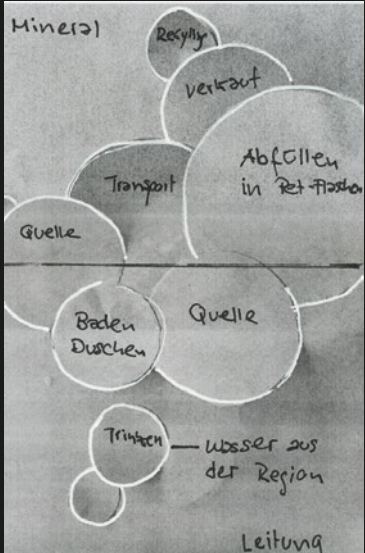 Mineral
Recyling
Verkauf
Abfüllen
in Pet-Flaschen
Transport
Quelle
Quelle
Baden
Duschen
Trinken
Wasser aus
der Region
Leitung